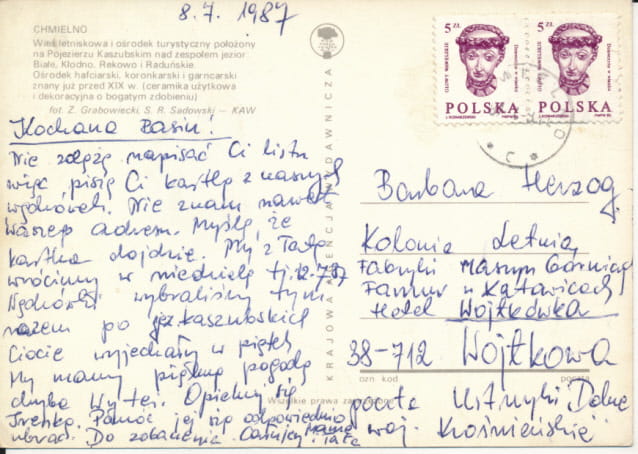 8.7.1987
CHMIELNO
Wieś letniskowa i ośrodek turystyczny położony
na Pojezierzu Kaszubskim nad zespołem jezior
Białe, Kłodno, Rekowo i Raduńskie
Ośrodek hafciarski, koronkarski i garncarski
znany już przed XIX w. (ceramika użytkowa
i dekoracyjna o bogatym zdobieniu)
fot. Z. Grabowiecki, S. R. Sadowski — KAW
Kochana Basiu!
Nie zdążę napisać Ci listu
więc piszę Ci kartkę z naszych
wędrówek. Nie znam nawet
Waszego adresu. Myślę, że
kartka dojdzie. My z Tatą
wrócimy w niedzielę tj. 12.7.87
Wędrówki wybraliśmy tym
razem po jez. kaszubskich
Ciocie wyjechały w piątek
My mamy piękną pogodę
chyba Wy też. Opiekuj się
Irenką. Pomóż jej się odpowiednio
ubrać. Do zobaczenia. Całujemy Mama
Tata
KRAJOWA AGENCJA WYDAWNICZA
Wszelkie prawa zastrzeżone
5 ZŁ
POLSKA
5 ZŁ
POLSKA
Barbara Herzog
Kolonia Letnia
Fabryki Maszyn Górniczych
Famur w Katowicach
Hotel Wojtkówka
38-712 Wojtkowa
ozn kod
poczta
poczta Ustrzyki Dolne
woj. Krośnieńskie